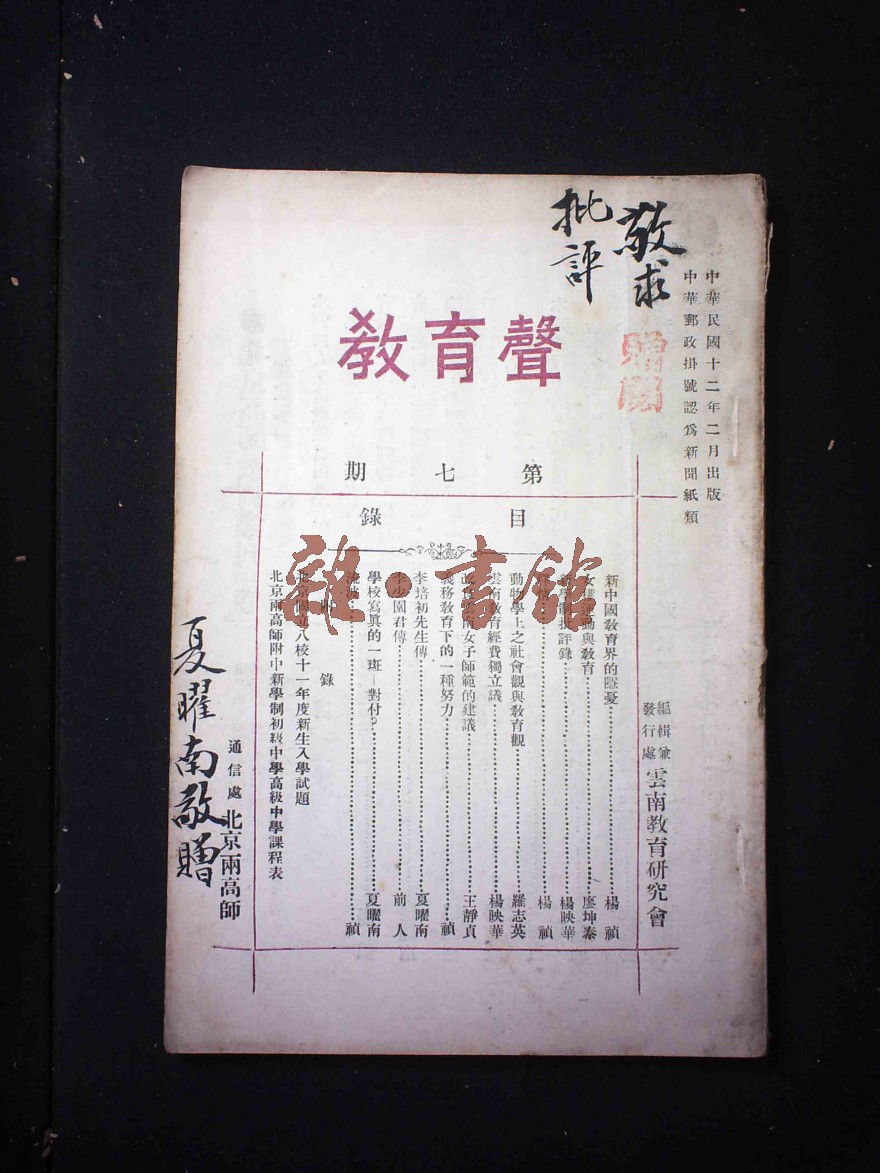 中華民國十二年二月出版
中華郵政掛號認爲新聞紙類
敬求
批評
贈閱
教育聲
第七期
目錄
編輯兼
發行處
雲南教育研究會
新中國教育界的隱憂 楊 禎
女權運動與教育 廖坤泰
新學制批評錄 楊映華
楊 禎
動物學上之社會觀與教育觀 羅志英
雲南教育經費獨立議 楊映華
改良雲南女子師範的建議 王靜貞
義務教育下的一種努力 禎
李培初先生傳 夏曜南
李少園君傳 前人
學校寫眞的一班—對付? 夏曜南
流波 禎
附錄
北京國立八校十一年度新生入學試題
北京兩高師附中新學制初級中學高級中學課程表
通信處 北京兩高師
夏曜南敬贈
雜·書館